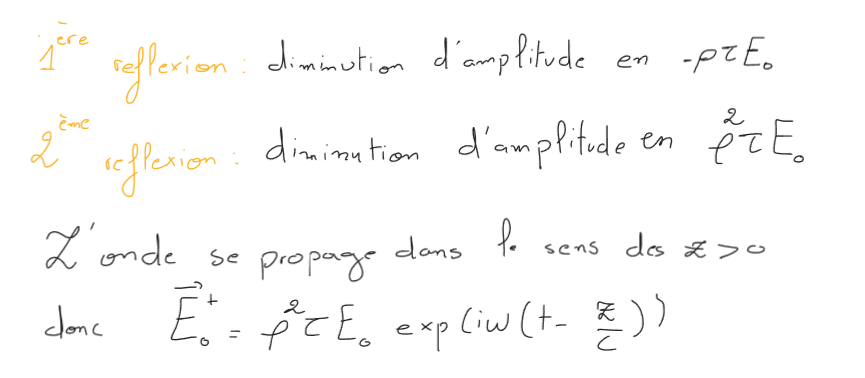 1ère reflexion : diminution d'amplitude en -ρτE₀
2ème reflexion : diminution d'amplitude en ρ²τE₀
L'onde se propage dans le sens des z>0
donc E⃗₀⁺ = ρ²τE₀ exp(iw(t- z/c))